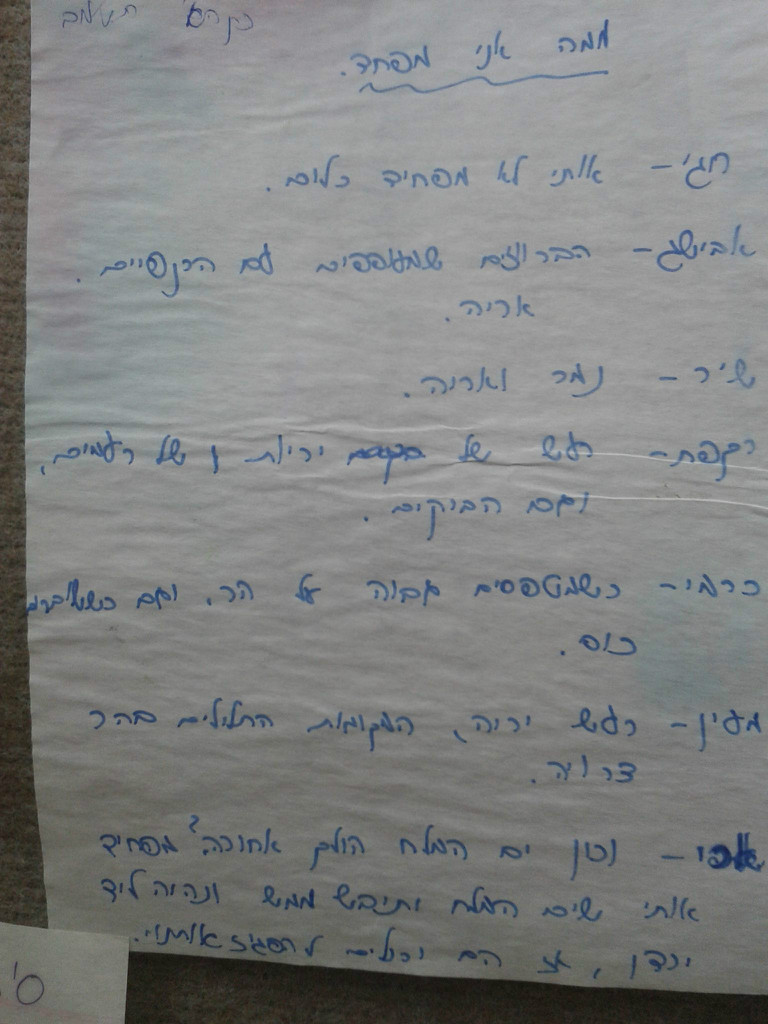 ממה אני מפחד.
חגי - אותי לא מפחיד כלום.
אבישג - הברווזים שמעופפים עם הכנפיים.
אריה.
שיר - נמר ואריה.
רקפת - רעש של יריות ו של רעמים,
וגם הבזיקים.
כרמי - כשמטפסים גבוה על הר. וגם כששוברים
כוס.
מעין - רעש יריה, המקומות התלולים בהר
צרויה.
למה ים המלח הולך אחורה? מפחיד
אותי שים המלח יתיבש ממש ונהיה ליד
ירדן, אז הם יכולים להפגיז אותנו.
ס'